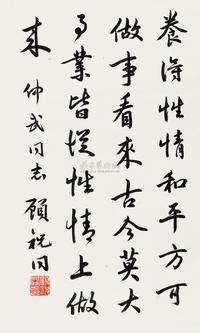 養得性情和平方可
做事看來古今莫大
事業皆從性情上做
來 仲武同志 顧祝同